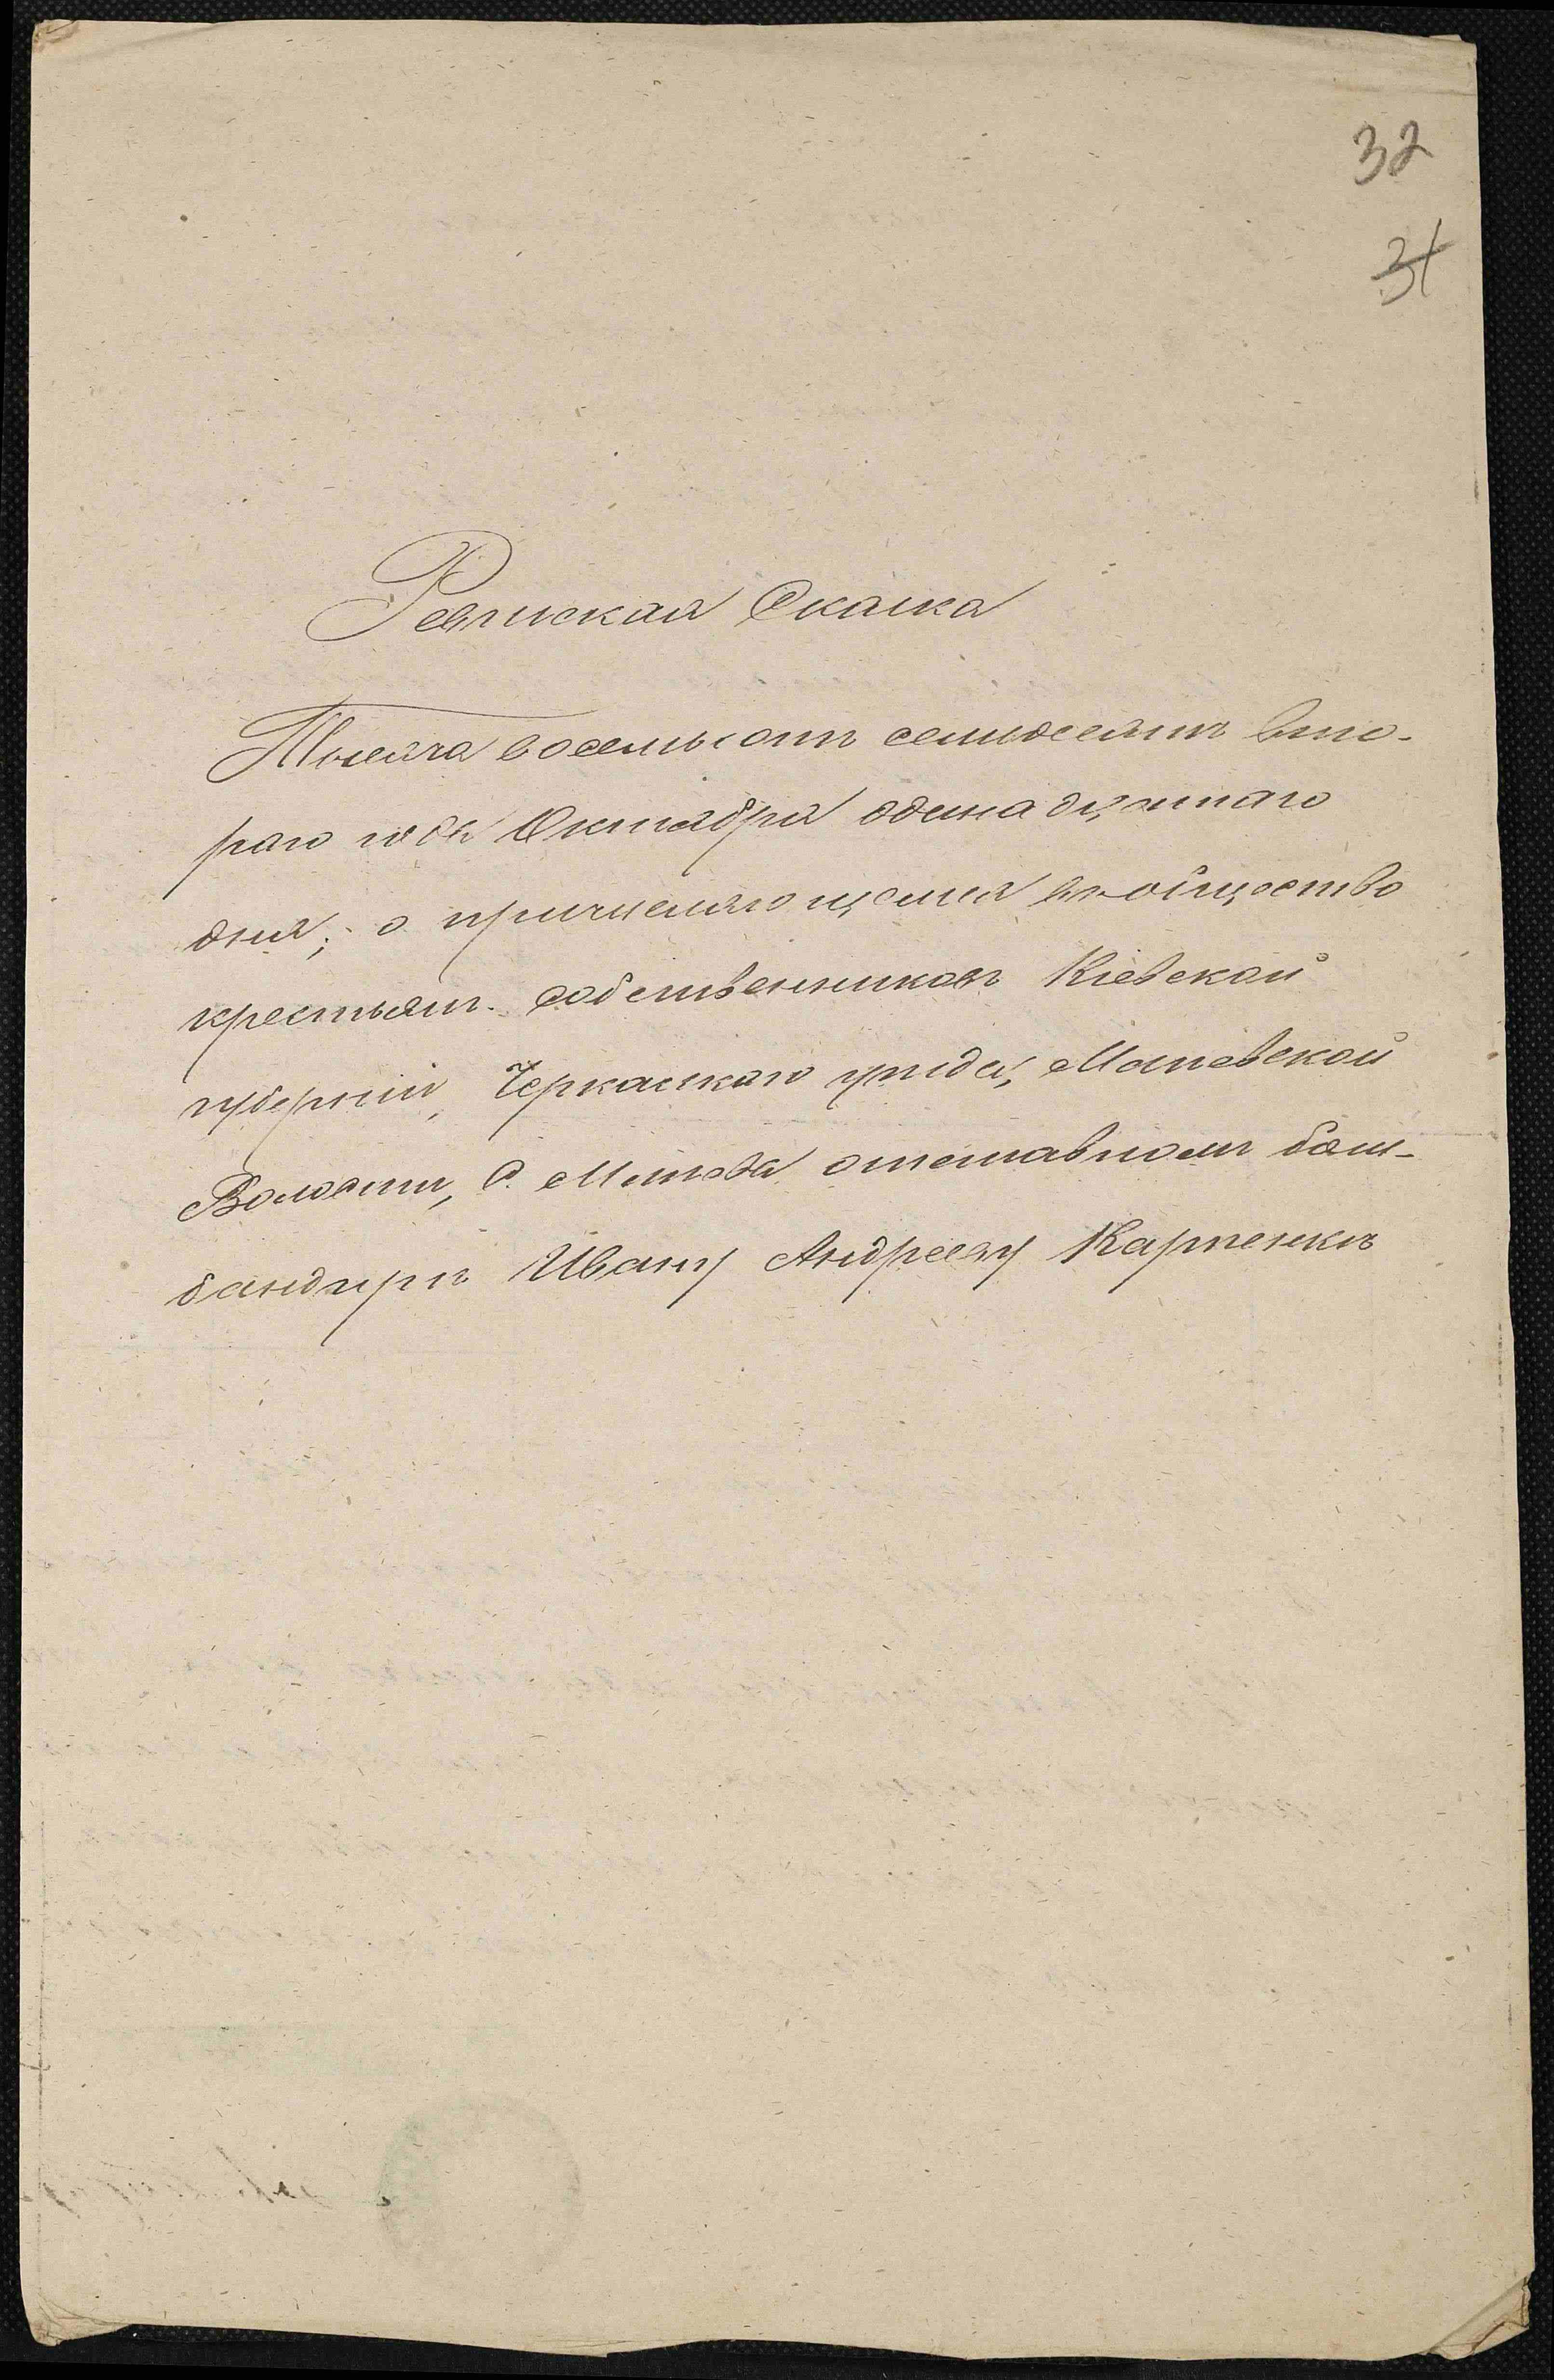 32
31
Ревиская Скаска
Тысяча восемьсотъ семидесятъ вто-
раго года Октября одинадцатаго
дня; о причисляющемся въ общество
крестьянъ собственниковъ Кіевской
губерніи, Черкаскаго уѣзда, Матевской
Волости, С. Матева отставномъ бом-
бандирѣ Ивану Андрееву Карпенкѣ